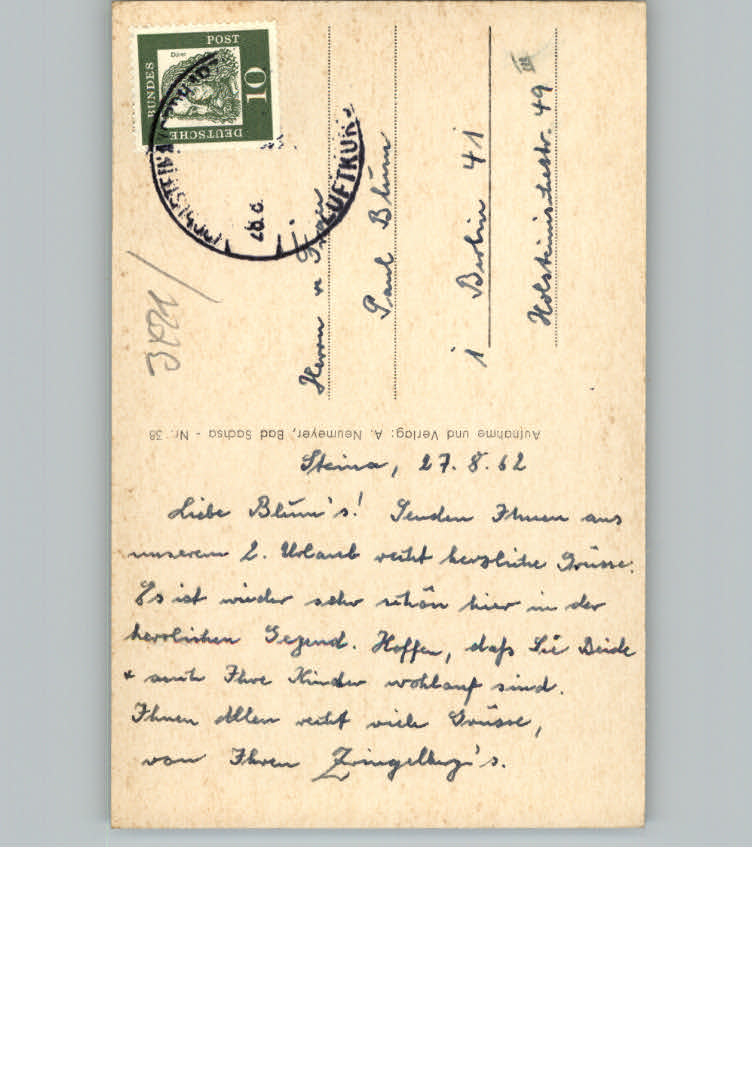 Steina, 27.8.62
Liebe Blüm's! Senden Ihnen aus
unserem 2. Urlaub recht herzliche Grüsse.
Es ist wieder sehr schön hier in der
herrlichen Gegend. Hoffen, daß Sie Beide
+ auch Ihre Kinder wohlauf sind.
Ihnen Allen recht viele Grüsse,
von Ihren
Herrn u Frau
Paul Blüm
1 Berlin 41
Holsteinischestr. 49 III
Aufnahme und Verlag: A. Neumeyer, Bad Sachsa - Nr. 38
DEUTSCHE
BUNDES
POST
Dürer
10
LUFTKUR
28.8.